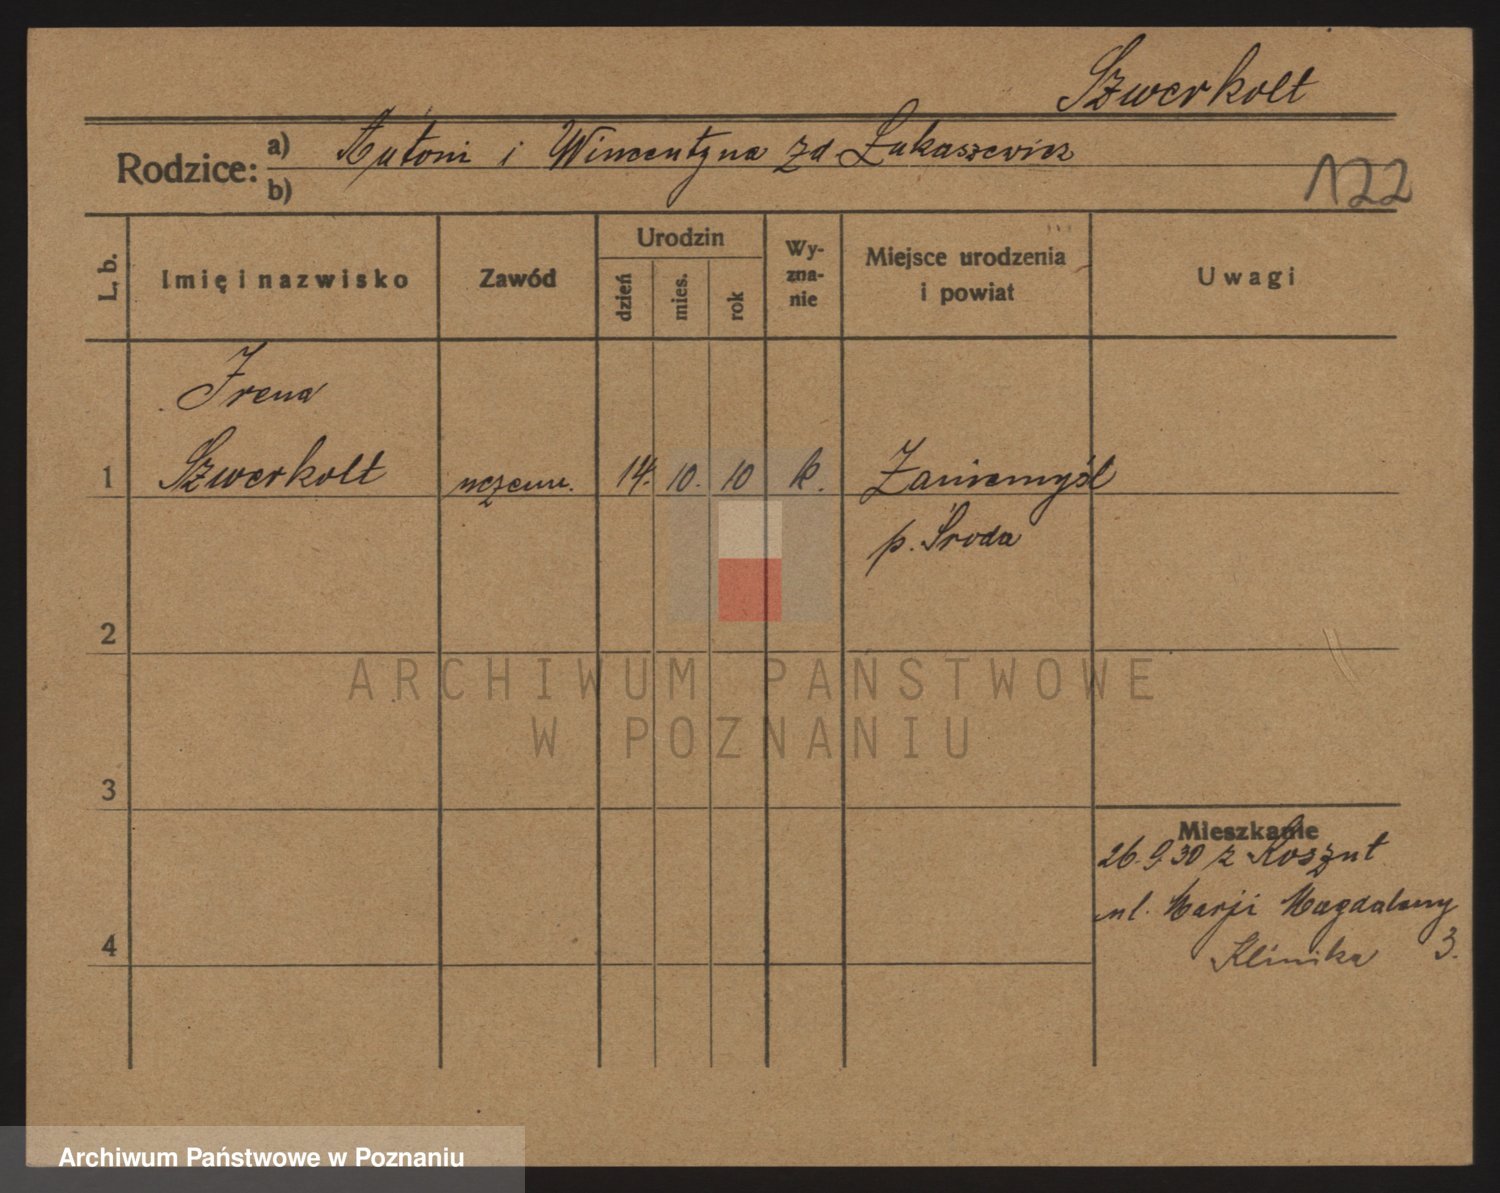 Szwerkolt
Rodzice: a) Antoni i Wincentyna zd Łukaszewicz
b)
122
L. b.
Imię i nazwisko
Zawód
Urodzin
dzień
mies.
rok
Wy-
zna-
nie
Miejsce urodzenia
i powiat
Uwagi
Irena
1 Szwerkolt uczenn. 14. 10. 10 k. Zaniemyśl
p. Środa
2
3
4
Mieszkanie
26.9.30 z Koszut
ul. Marji Magdaleny
Klinika 3.
ARCHIWUM PAŃSTWOWE
W POZNANIU
Archiwum Państwowe w Poznaniu